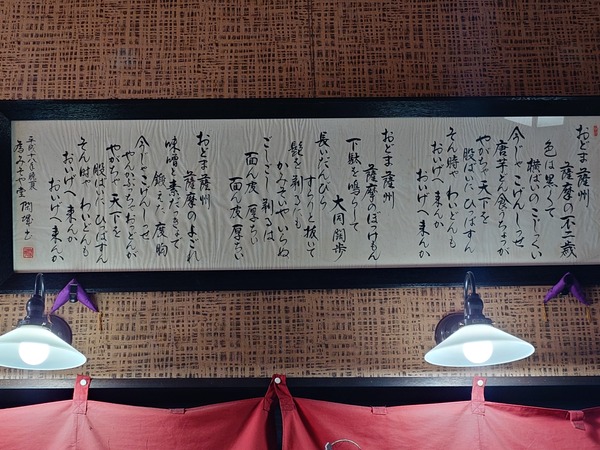 おどま薩州
薩摩の不二歳
色は黒くて
横ばいのこじっくい
今じゃこげんしっせ
唐芋どん食うちょっが
やがちゃ天下を
股ばいに、ひっぱすん
そん時ゃ わいどんも
おいげへ 来んか
おいげへ 来んか
おどま薩州
薩摩のぼっけもん
下駄を鳴らして
大同闊歩
長いだんびら
すらりと抜いて
髭をも剃るだ
かみそいやいらぬ
ごしごし剃るは
面ん皮厚ちい
面ん皮厚ちい
おどま薩州
薩摩のよごれ
味噌と素だっきょで
鍛えた 度胸
今じゃこげんしっせ
やんかぶっちおっどんが
やがちゃ天下を
股ばいに、ひっぱすん
そん時ゃ わいどんも
おいげへ 来んか
おいげへ 来んか
平成六年晩夏